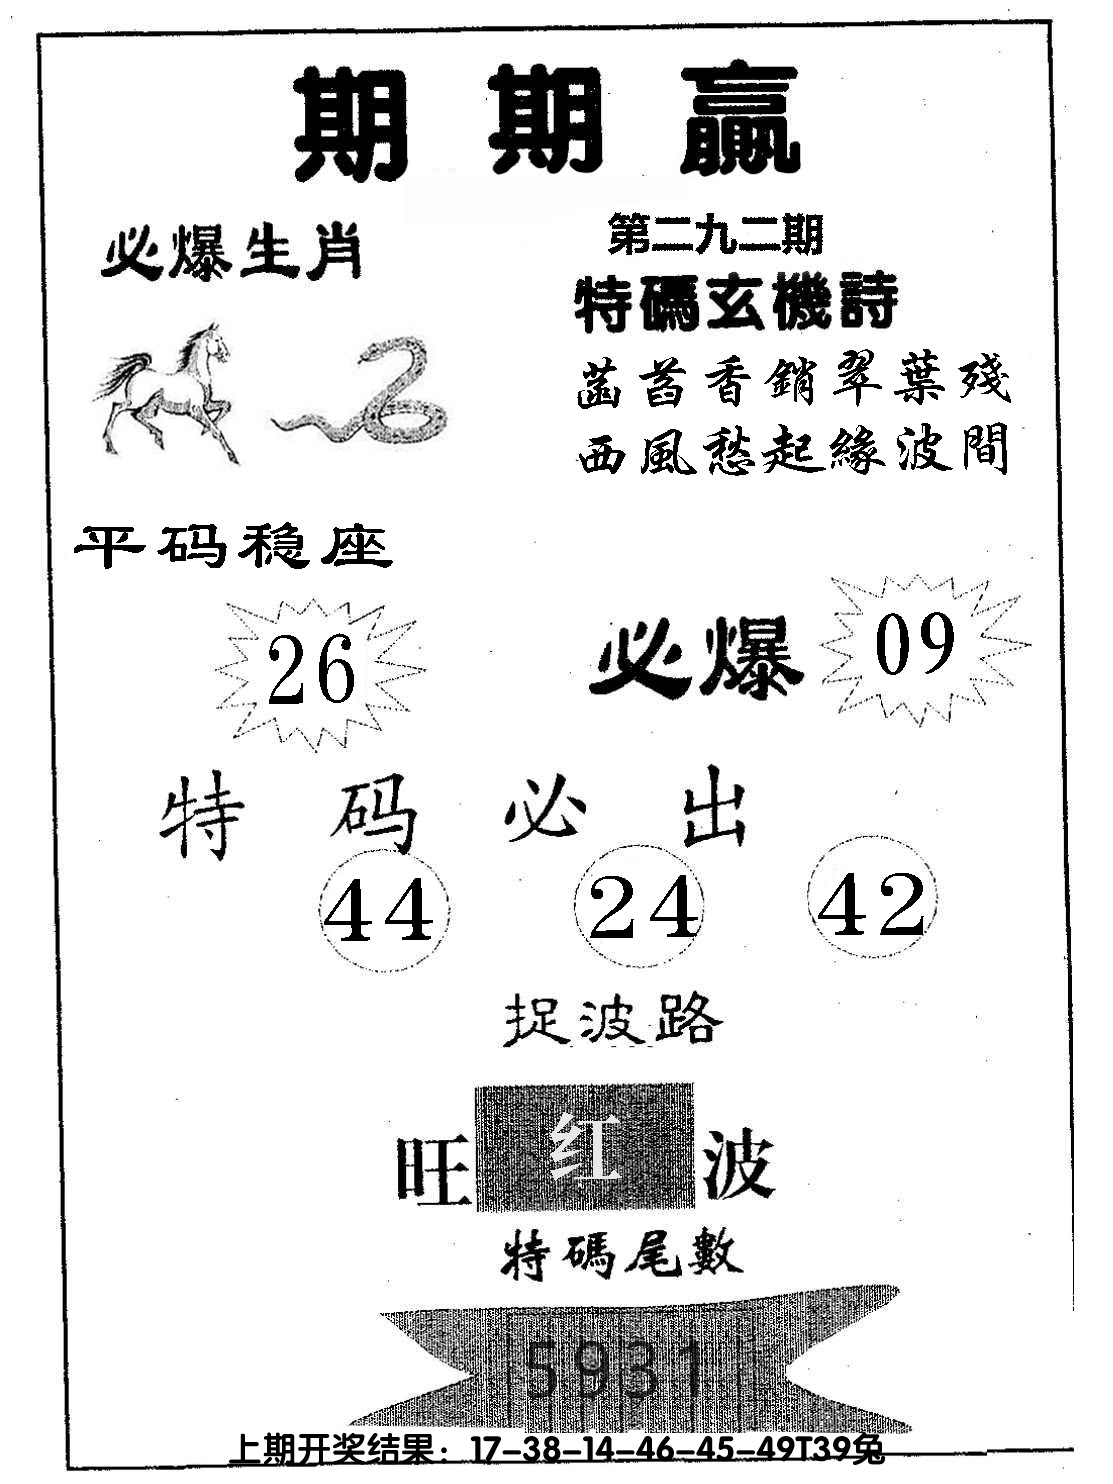 期期贏
必爆生肖
第二九二期
特碼玄機詩
菡萏香銷翠葉殘
西風愁起緣波間
平码稳座
26
必爆
09
特码必出
44
24
42
捉波路
旺红波
特碼尾數
5931
上期开奖结果：17-38-14-46-45-49T39兔